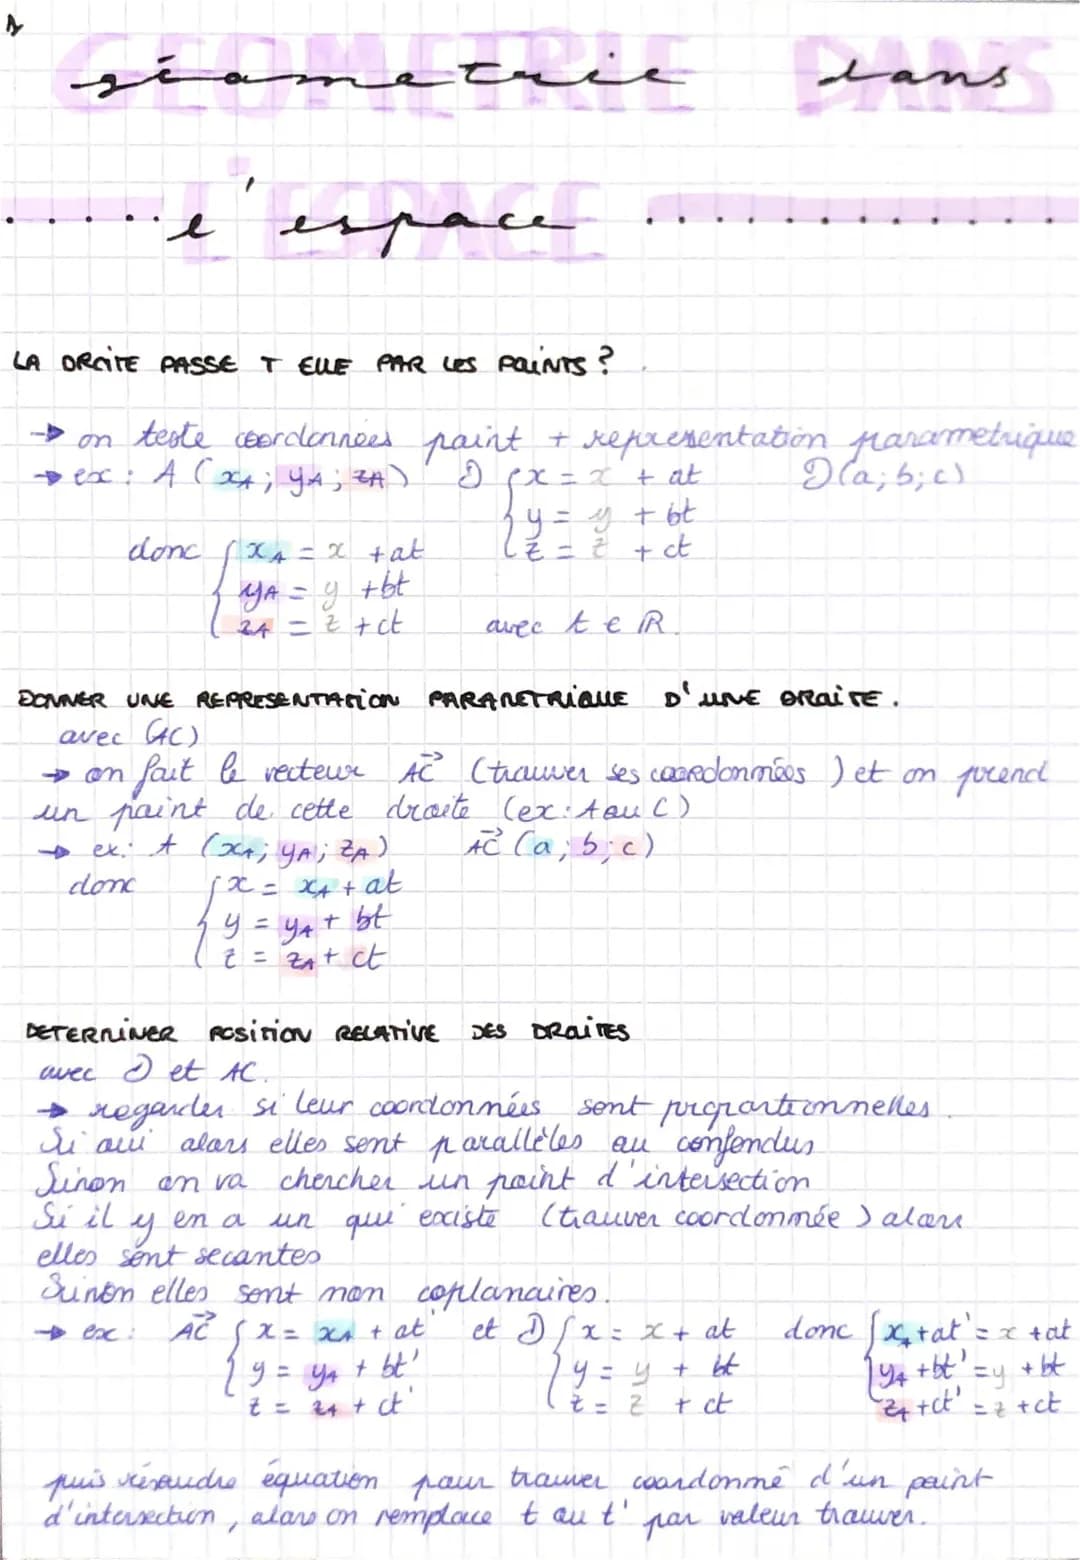 A
GEOMETRIE DANS
géometrie dans
L'ESPACE
l'espace
LA DROITE PASSE T ELLE PAR LES POINTS ?
→ on teste coordonnées point + representation parametrique
→ ex : A (xA ; yA ; zA) D { x = x + at D(a; b; c)
y = y + bt
z = z + ct
donc { xA = x + at
yA = y + bt
zA = z + ct avec t ∈ ℝ.
DONNER UNE REPRESENTATION PARAMETRIQUE D'UNE DROITE.
avec (AC)
→ on fait le vecteur AC⃗ (trouver ses coordonnées) et on prend
un point de cette droite (ex: A ou C)
→ ex: A (xA; yA; zA) AC⃗ (a; b; c)
donc { x = xA + at
y = yA + bt
z = zA + ct
DETERMINER POSITION RELATIVE DES DROITES
avec D et AC.
→ regarder si leur coordonnées sont proportionnelles.
Si oui alors elles sont parallèles ou confondus
Sinon on va chercher un point d'intersection
Si il y en a un qui existe (trouver coordonnée) alors
elles sont secantes
Sinon elles sont non coplanaires.
→ ex: AC⃗ { x = xA + at' et D { x = x + at donc { xA + at' = x + at
y = yA + bt' y = y + bt yA + bt' = y + bt
z = zA + ct' z = z + ct zA + ct' = z + ct
puis résoudre équation pour trouver coordonné d'un point
d'intersection, alors on remplace t ou t' par valeur trouver.